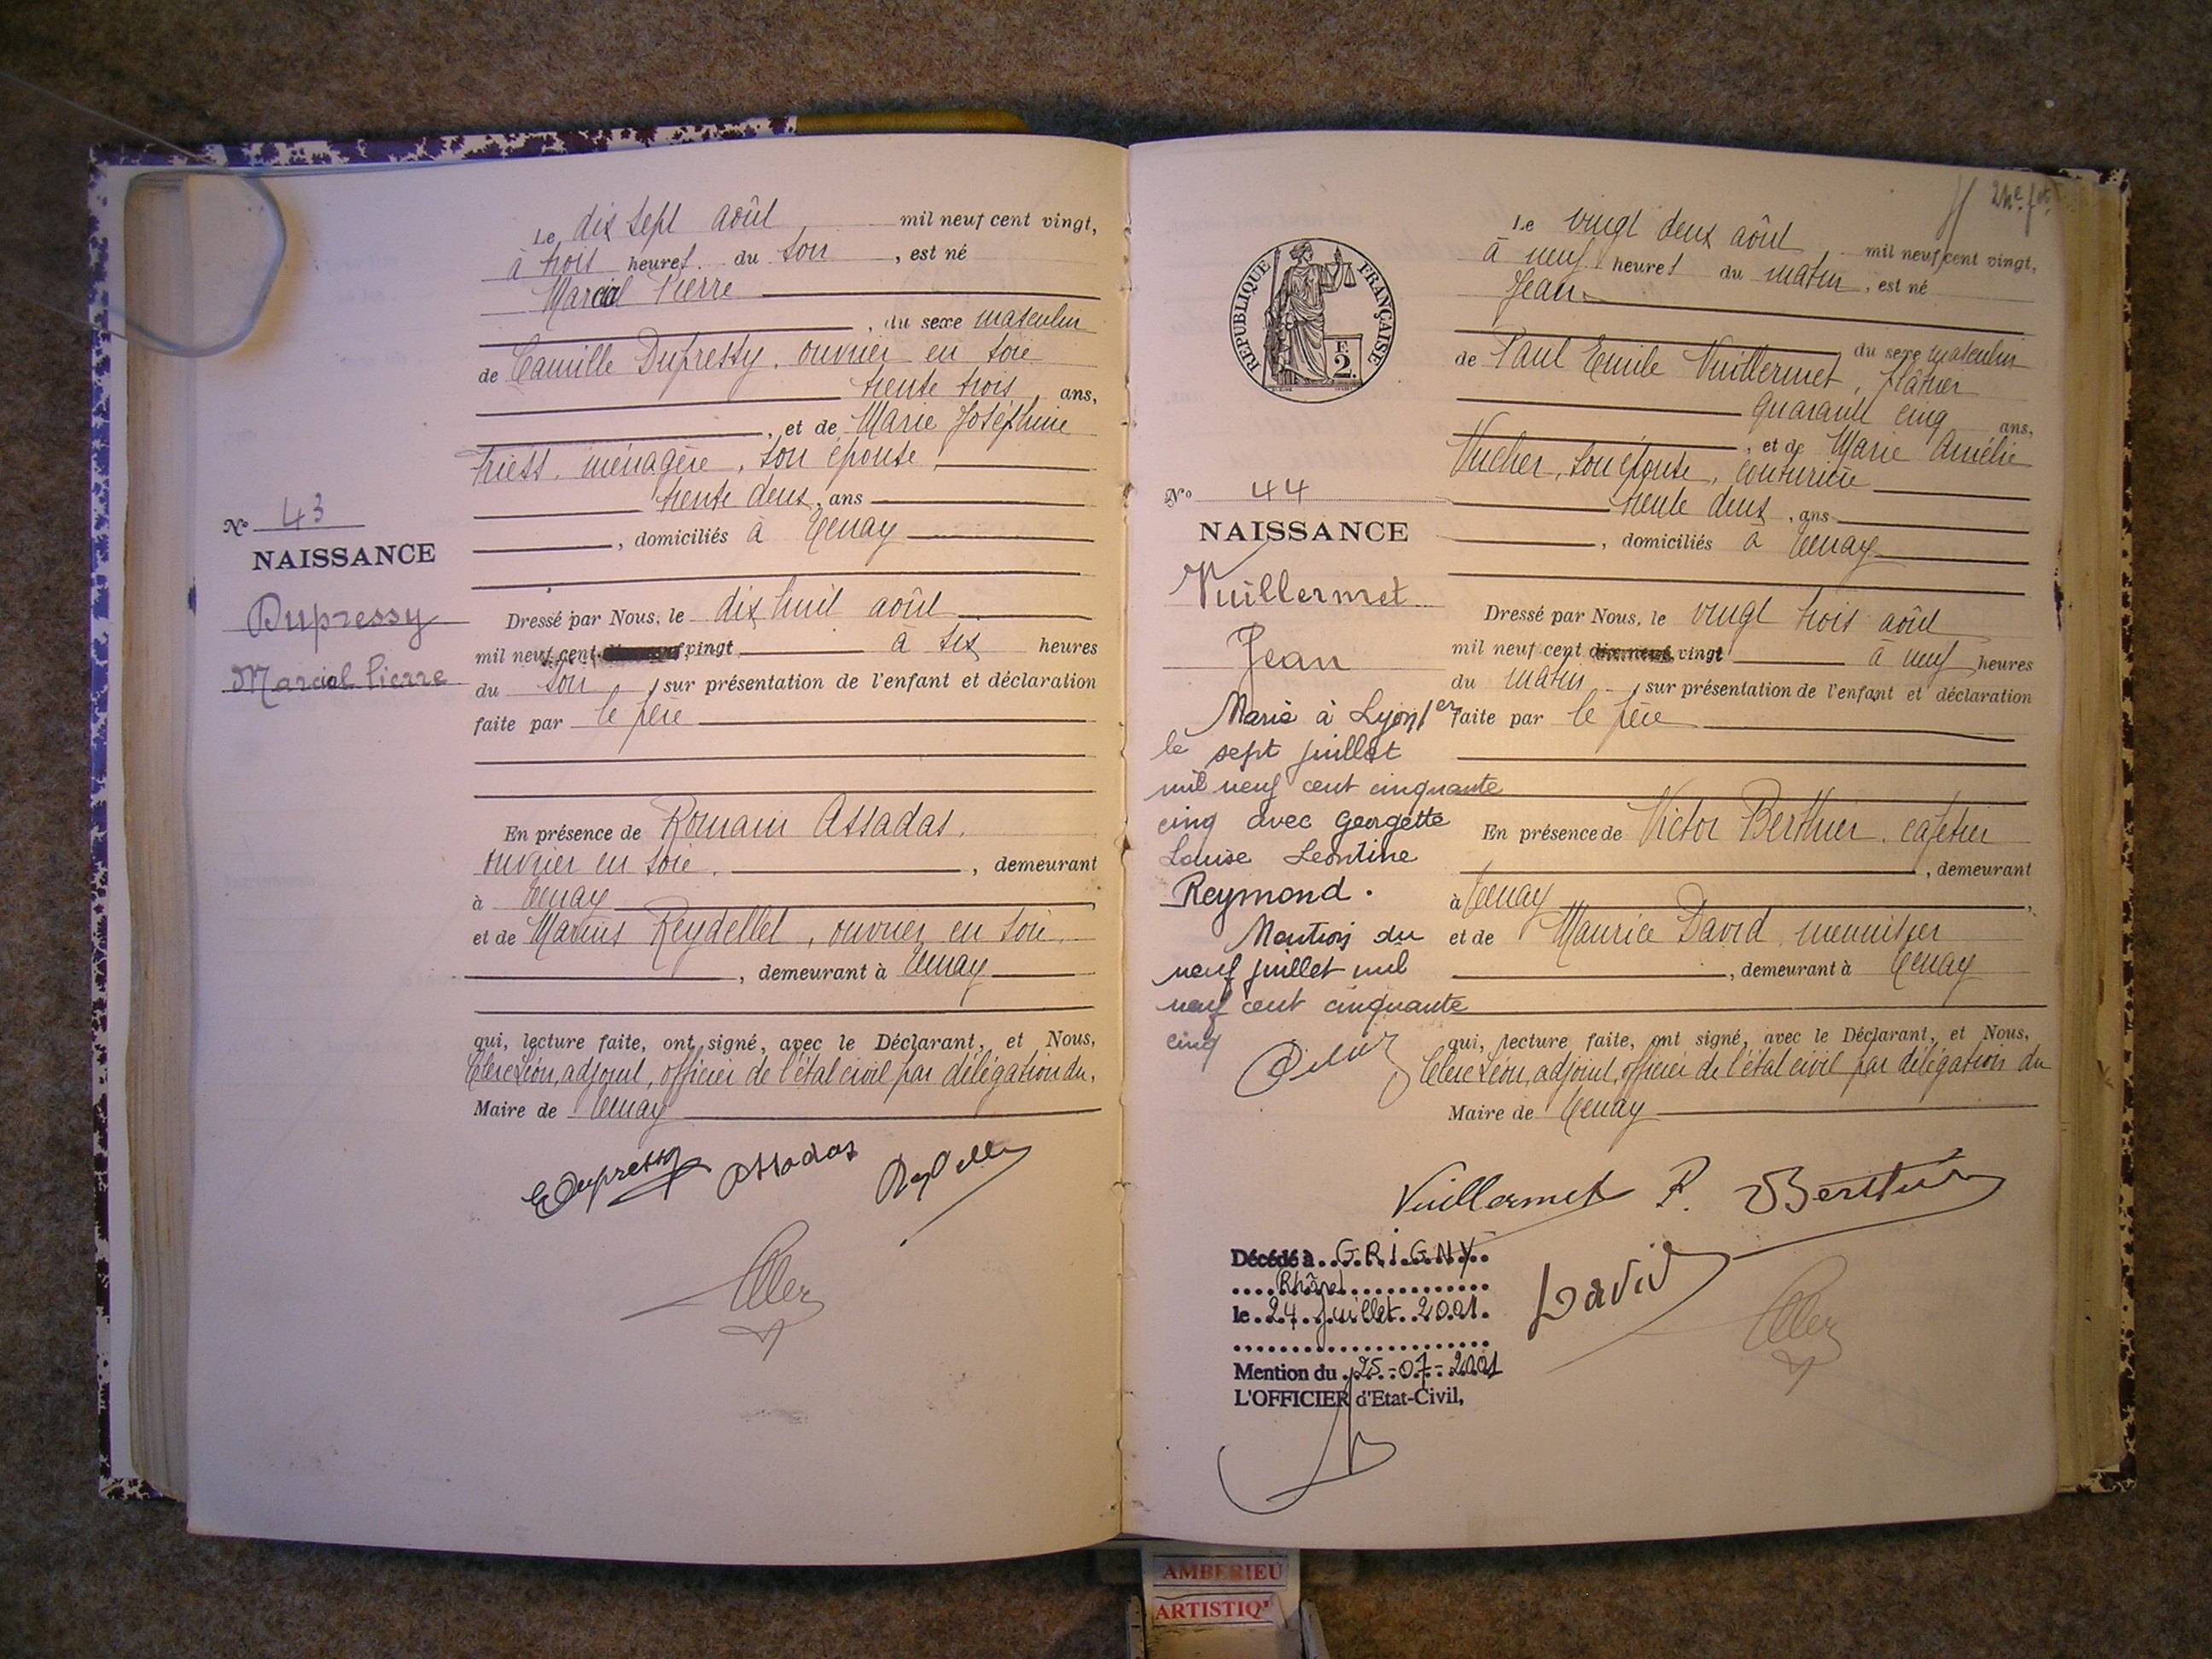 Le dix sept août mil neuf cent vingt,
à trois heures du soir, est né
Marcial Pierre
, du sexe masculin
de Camille Dupressy, ouvrier en soie
trente trois ans,
, et de Marie Joséphine
Friess, ménagère, son épouse,
trente deux, ans
N° 43
, domiciliés à Tenay
NAISSANCE
Dupressy
Marcial Pierre
Dressé par Nous, le dix huit août
mil neuf cent vingt à six heures
du soir, sur présentation de l'enfant et déclaration
faite par le père
En présence de Romain Assadas,
ouvrier en soie, , demeurant
à Tenay,
et de Marius Reydellet, ouvrier en soie,
, demeurant à Tenay
qui, lecture faite, ont signé, avec le Déclarant, et Nous,
Clerc Léon, adjoint, officier de l'état civil par délégation du,
Maire de Tenay
Dupressy Assadas Reydellet
24e ft.
Le vingt deux août mil neuf cent vingt,
à neuf heures du matin, est né
Jean
REPUBLIQUE FRANÇAISE
F. 2.
du sexe masculin
de Paul Emile Vuillermet, plâtrier
quarante cinq ans,
, et de Marie Amélie
Vucher, son épouse, couturière
trente deux, ans
N° 44
NAISSANCE
, domiciliés à Tenay
Vuillermet
Jean
Dressé par Nous, le vingt trois août
mil neuf cent dix-neuf vingt à neuf heures
du matin, sur présentation de l'enfant et déclaration
faite par le père
Marié à Lyon 1er
le sept juillet
mil neuf cent cinquante
cinq avec Georgette
Louise Leontine
Reymond.
Mention du
neuf juillet mil
neuf cent cinquante
cinq
En présence de Victor Berthier, cafetier
, demeurant
à Tenay,
et de Maurice David, menuisier
, demeurant à Tenay
qui, lecture faite, ont signé, avec le Déclarant, et Nous,
Clerc Léon, adjoint, officier de l'état civil par délégation du
Maire de Tenay
Vuillermet P. Berthier
David
Décédé à GRIGNY
Rhône
le 24 Juillet 2001.
Mention du 25-07-2001
L'OFFICIER d'Etat-Civil,
AMBERIEU
ARTISTIQ'